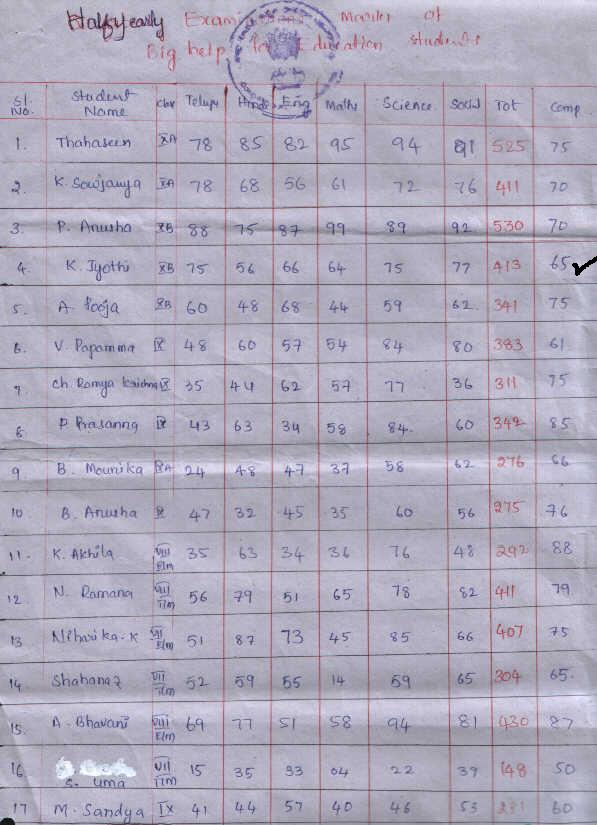 Halfyearly Examinations Marks of
Big help for Education students
Sl. No. Student Name Class Telugu Hindi Eng Maths Science Social Tot Comp
1. Thahaseen XA 78 85 82 95 94 91 525 75
2. K. Sowjanya XA 78 68 56 61 72 76 411 70
3. P. Anusha XB 88 75 87 99 89 92 530 70
4. K. Jyothi XB 75 56 66 64 75 77 413 65 ✓
5. A. Pooja XB 60 48 68 44 59 62 341 75
6. V. Papamma IX 48 60 57 54 84 80 383 61
7. Ch. Ramya Krishna IX 35 44 62 57 77 36 311 75
8 P Prasanna IX 43 63 34 58 84 60 342 85
9 B. Mounika IXA 24 48 47 37 58 62 276 66
10 B. Anusha IX 47 32 45 35 60 56 275 76
11. K. Akhila VIII E/m 35 63 34 36 76 48 292 88
12. N. Ramana VIII T/m 56 79 51 65 78 82 411 79
13 Niharika. K VII E/m 51 87 73 45 85 66 407 75
14 Shahanaz VII T/m 52 59 55 14 59 65 304 65.
15. A. Bhavani VIII E/m 69 77 51 58 94 81 430 87
16 S. Uma VII T/m 15 35 33 04 22 39 148 50
17 M. Sandya IX 41 44 57 40 46 53 281 60